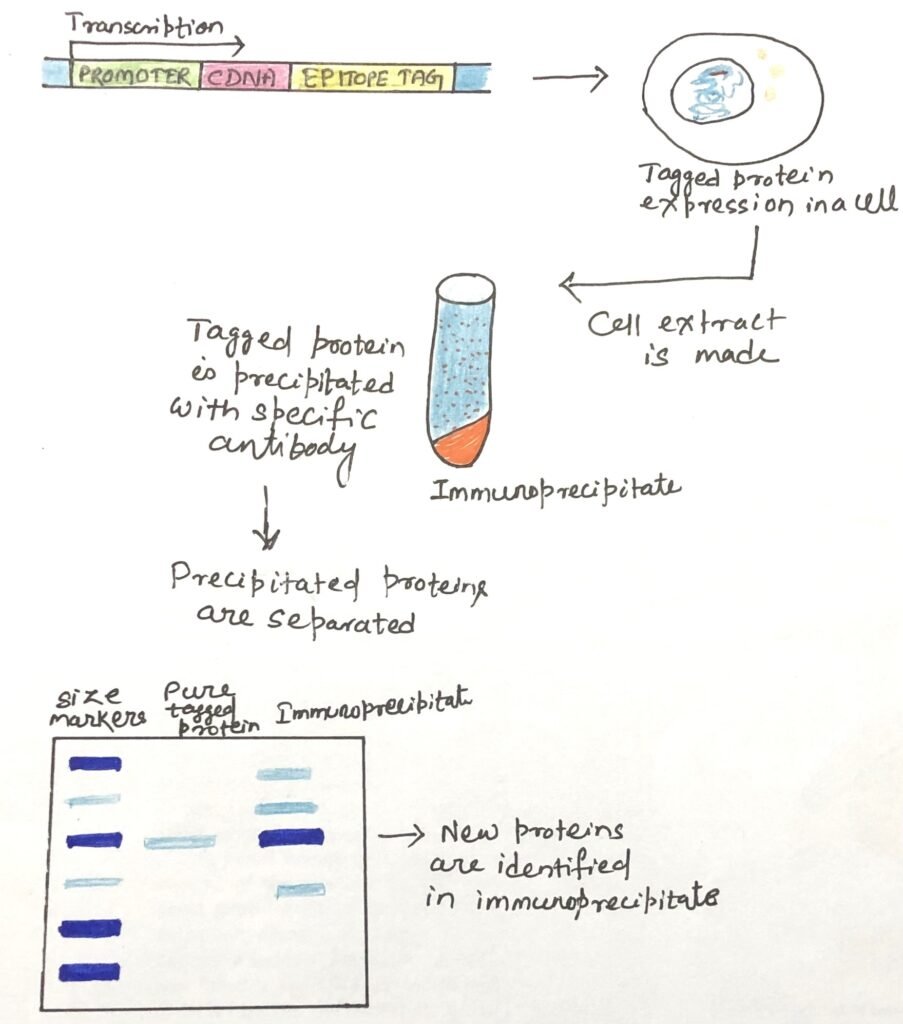 Transcription
PROMOTER CDNA EPITOPE TAG
Tagged protein
expression in a cell
Cell extract
is made
Tagged protein
is precipitated
with specific
antibody
Immunoprecipitate
Precipitated proteins
are separated
size
markers
Pure
tagged
protein
Immunoprecipitate
New proteins
are identified
in immunoprecipitate